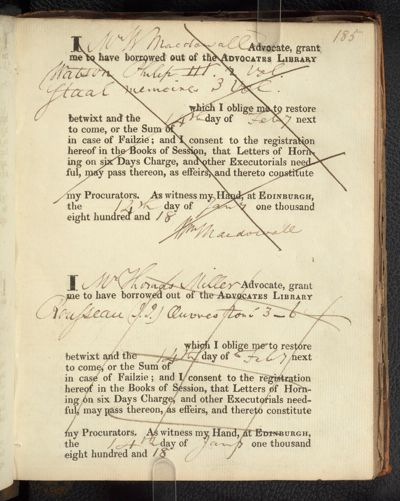 185
I Mr W Macdowall Advocate, grant
me to have borrowed out of the ADVOCATES LIBRARY
Watson Philip III 2 vol
Staal memoires 3 Vol.
which I oblige me to restore
betwixt and the 14th day of Feby next
to come, or the Sum of
in case of Failzie; and I consent to the registration
hereof in the Books of Session, that Letters of Horn-
ing on six Days Charge, and other Executorials need-
ful, may pass thereon, as effeirs, and thereto constitute
my Procurators. As witness my Hand, at EDINBURGH,
the 14th day of Jany one thousand
eight hundred and 18
Wm Macdowall
I Mr Thomas Miller Advocate, grant
me to have borrowed out of the ADVOCATES LIBRARY
Rousseau (J.J) Œuvres 3-6
which I oblige me to restore
betwixt and the 14th day of Feby next
to come, or the Sum of
in case of Failzie; and I consent to the registration
hereof in the Books of Session, that Letters of Horn-
ing on six Days Charge, and other Executorials need-
ful, may pass thereon, as effeirs, and thereto constitute
my Procurators. As witness my Hand, at EDINBURGH,
the 14th day of Jany one thousand
eight hundred and 18